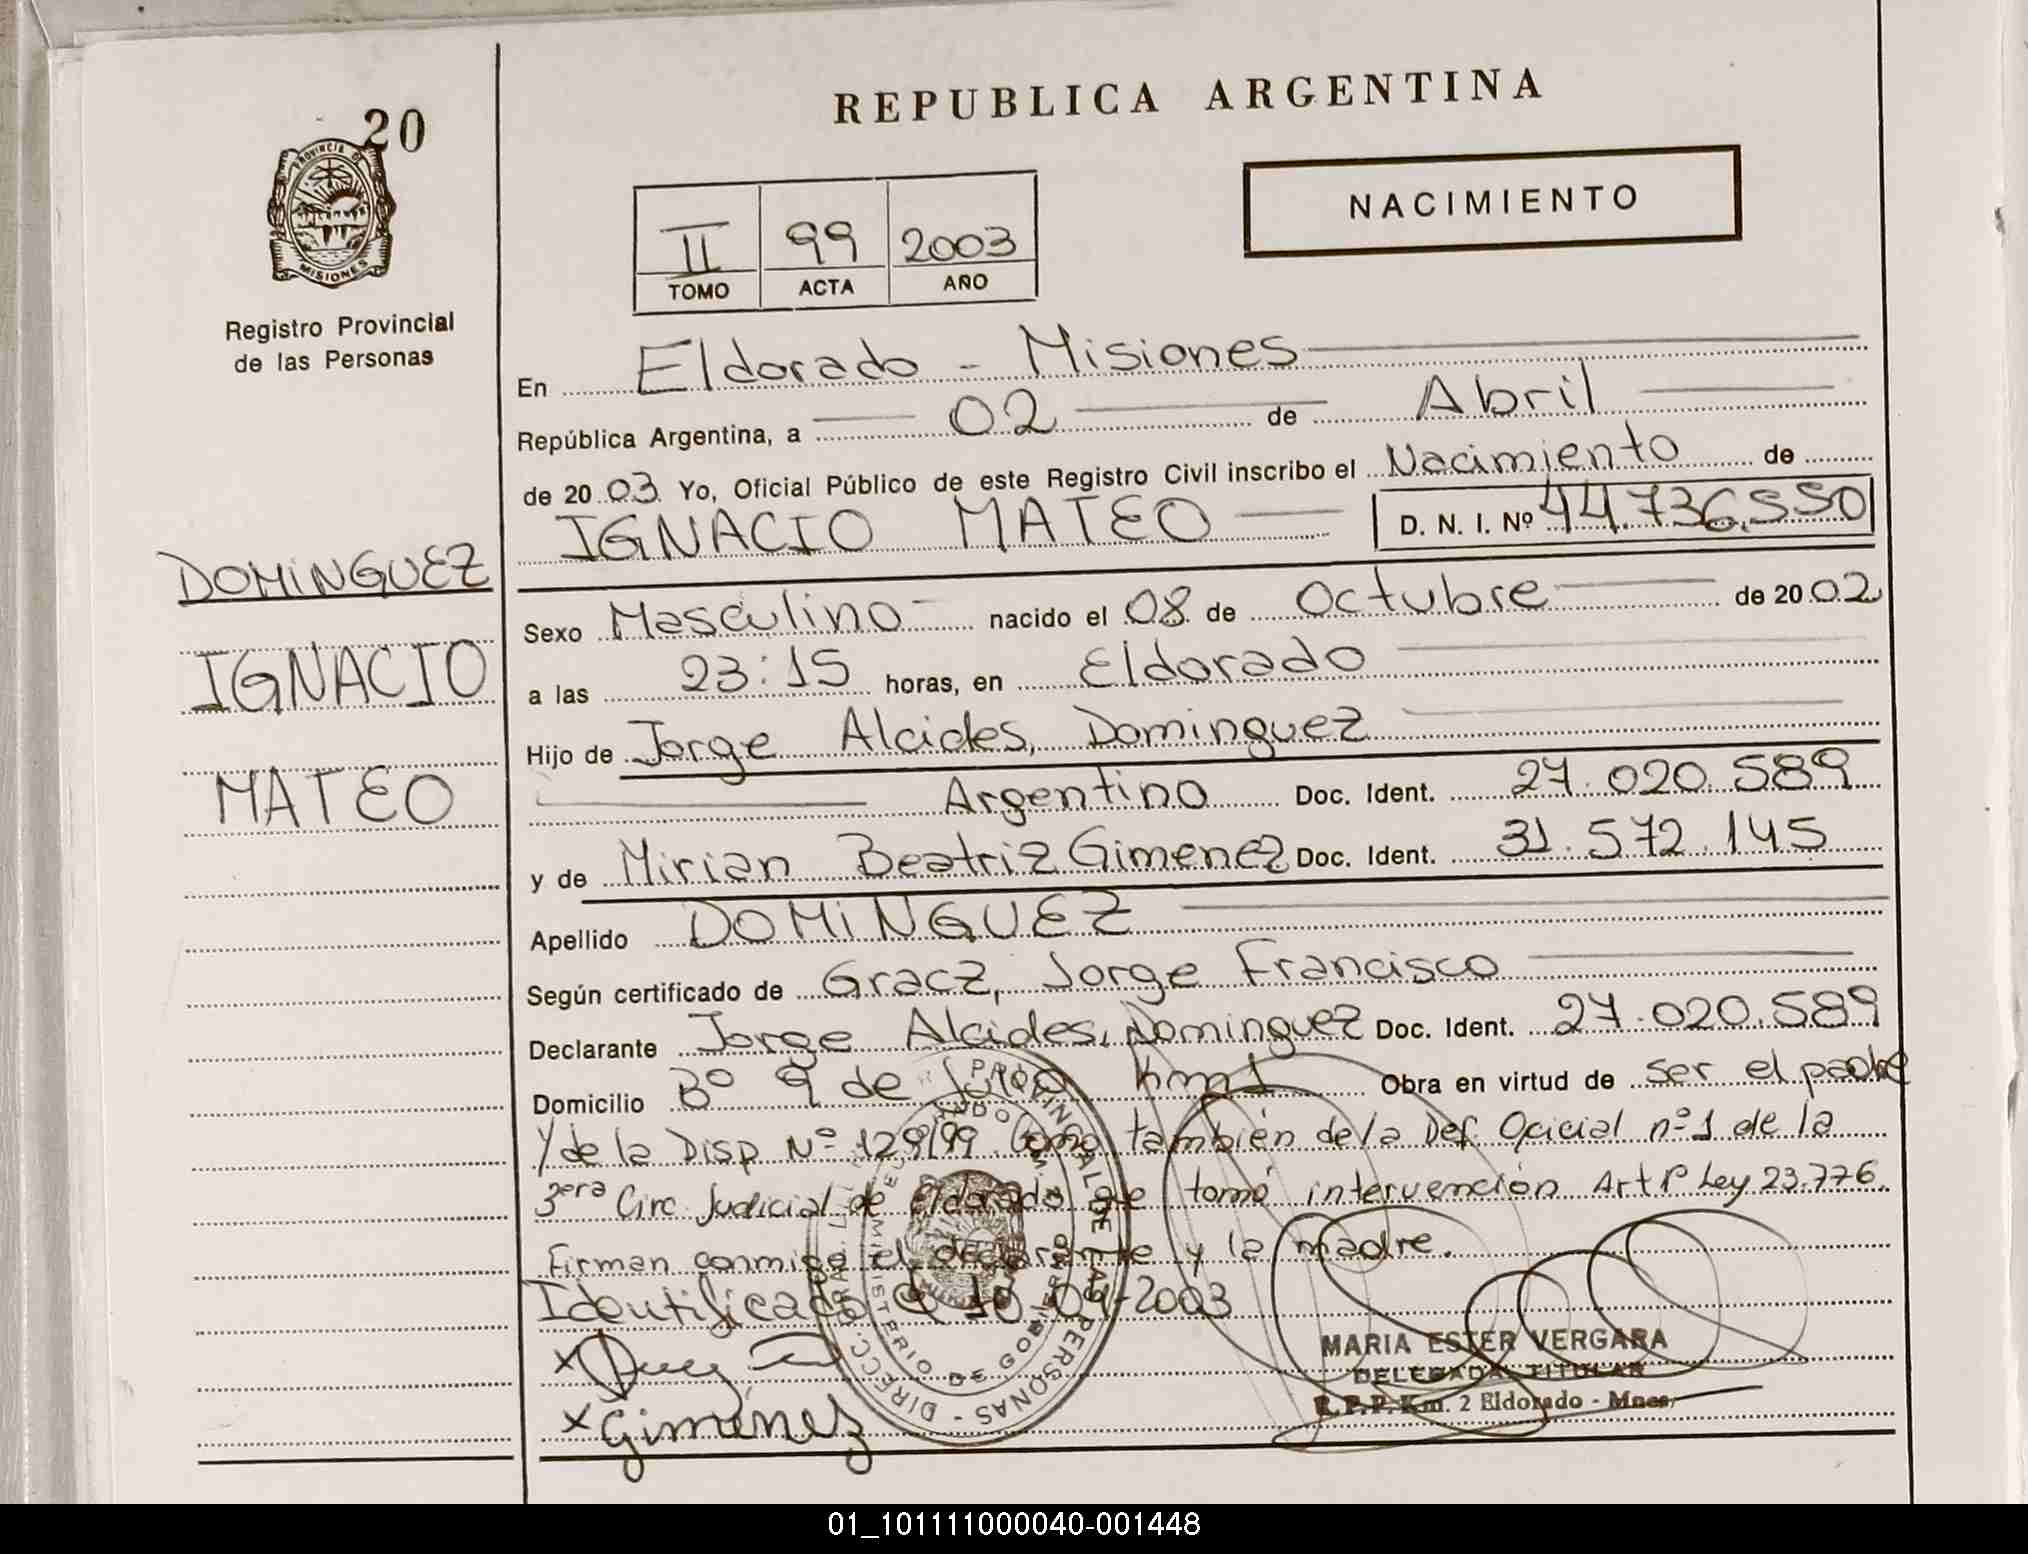 REPUBLICA ARGENTINA
20
PROVINCIA DE
MISIONES
Registro Provincial
de las Personas
NACIMIENTO
II 99 2003
TOMO ACTA AÑO
En Eldorado - Misiones
República Argentina, a 02 de Abril
de 20 03 Yo, Oficial Público de este Registro Civil inscribo el Nacimiento de
IGNACIO MATEO D. N. I. Nº 44.736.550
DOMINGUEZ
IGNACIO
MATEO
Sexo Masculino nacido el 08 de Octubre de 20 02
a las 23:15 horas, en Eldorado
Hijo de Jorge Alcides, Dominguez
Argentino Doc. Ident. 27.020.589
y de Mirian Beatriz Gimenez Doc. Ident. 31.572.145
Apellido DOMINGUEZ
Según certificado de Gracz, Jorge Francisco
Declarante Jorge Alcides, Dominguez Doc. Ident. 27.020.589
Domicilio Bº 9 de Julio Km 1 Obra en virtud de ser el padre
y de la Disp Nº 129/99 Como también de la Def. Oficial nº 1 de la
3era Circ. Judicial de Eldorado que tomó intervención Art 1º Ley 23.776.
Firman conmigo el declarante y la madre.
Identificado 10-04-2003
x
x Giménez
MARIA ESTER VERGARA
DELEGADA TITULAR
R.P.P. Km. 2 Eldorado - Mnes.
01_101111000040-001448